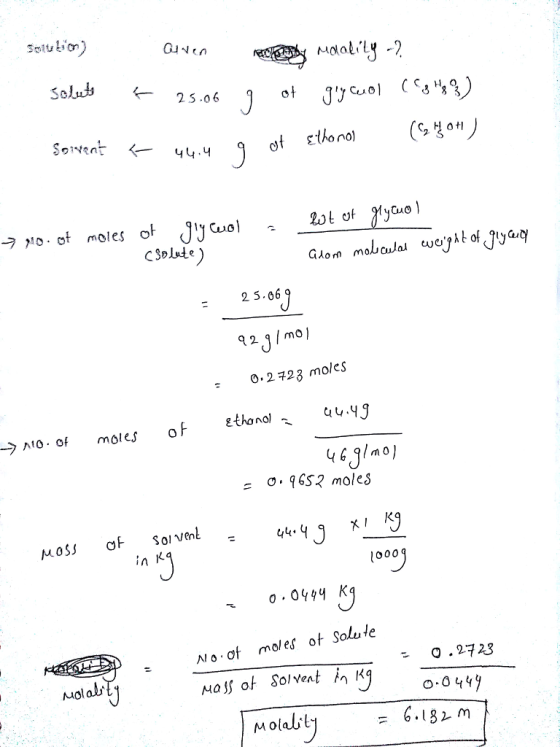 Solution) Given Molality -?
Solute ← 25.06 g of glycerol (C3H8O3)
Solvent ← 44.4 g of Ethanol (C2H5OH)
→ No. of moles of glycerol = Wt of glycerol
(Solute) Gram molecular weight of glycerol
= 25.06g
92g/mol
= 0.2723 moles
→ No. of moles of Ethanol = 44.4g
46g/mol
= 0.9652 moles
Mass of solvent = 44.4 g x1 Kg
in Kg 1000g
= 0.0444 Kg
Molality = No. of moles of Solute = 0.2723
Mass of Solvent in Kg 0.0444
Molality = 6.132 m